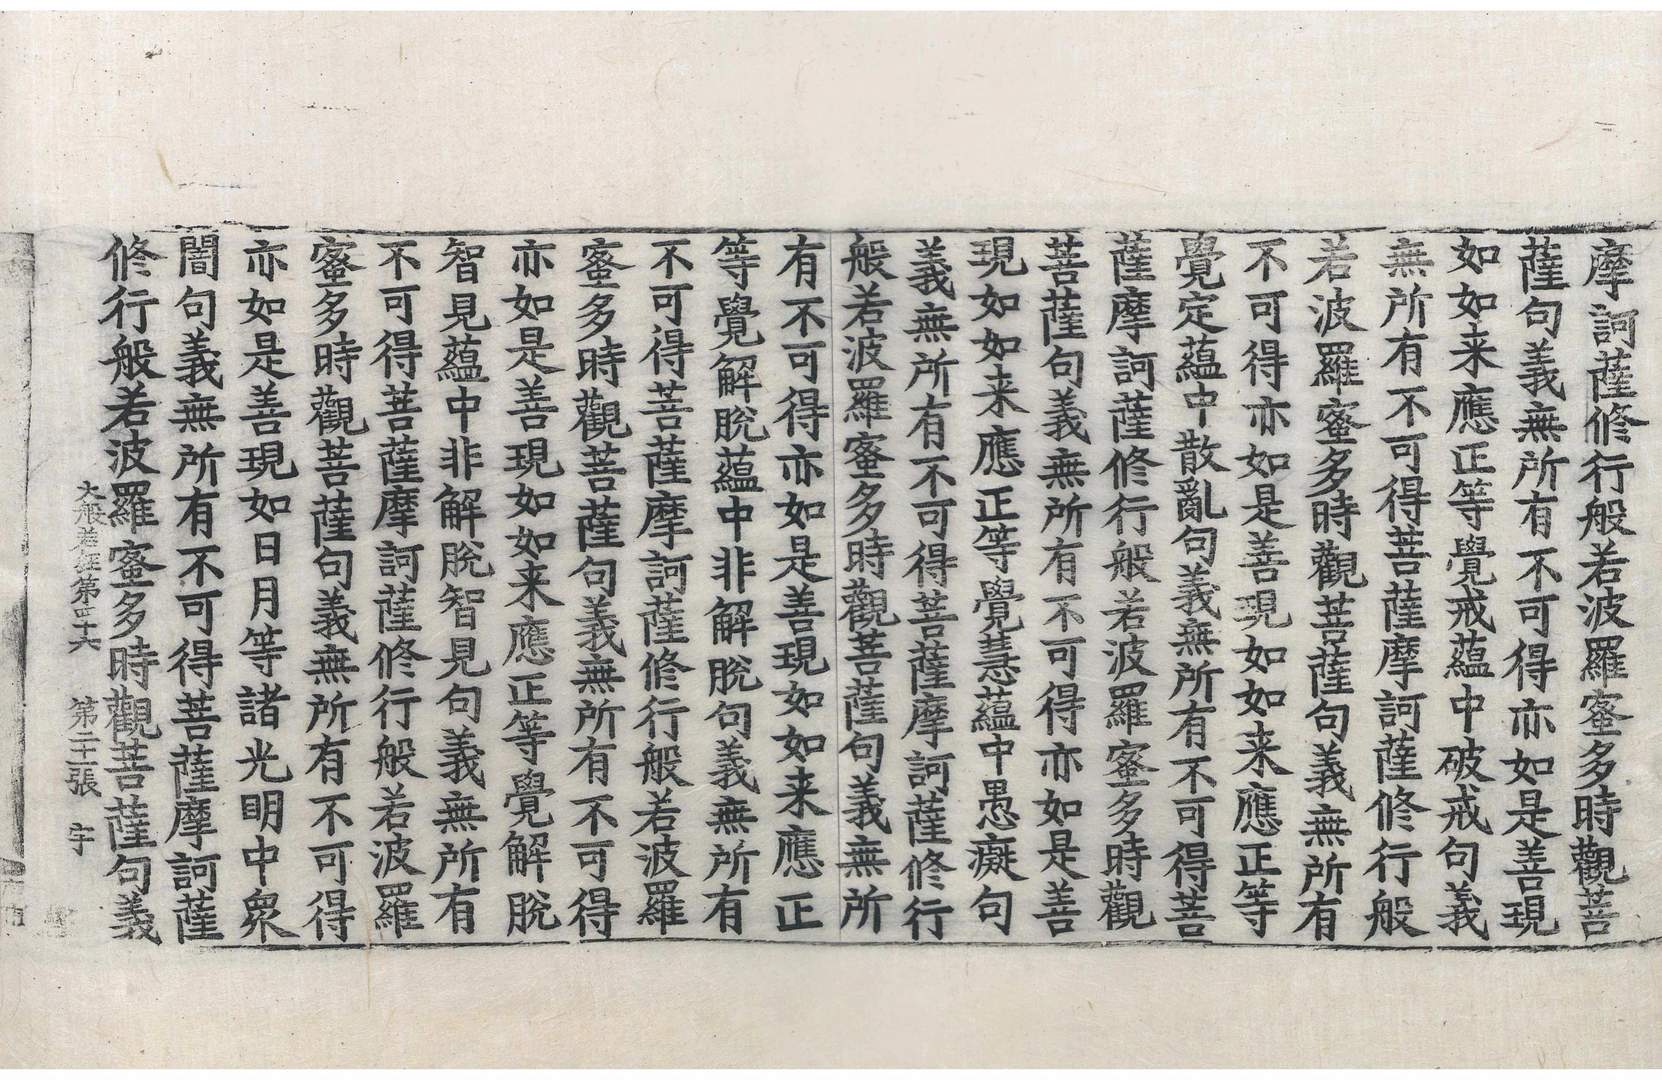 摩訶薩修行般若波羅蜜多時觀菩
薩句義無所有不可得亦如是善現
如如来應正等覺戒蘊中破戒句義
無所有不可得菩薩摩訶薩修行般
若波羅蜜多時觀菩薩句義無所有
不可得亦如是善現如如来應正等
覺定蘊中散亂句義無所有不可得菩
薩摩訶薩修行般若波羅蜜多時觀
菩薩句義無所有不可得亦如是善
現如如来應正等覺慧蘊中愚癡句
義無所有不可得菩薩摩訶薩修行
般若波羅蜜多時觀菩薩句義無所
有不可得亦如是善現如如来應正
等覺解脫蘊中非解脫句義無所有
不可得菩薩摩訶薩修行般若波羅
蜜多時觀菩薩句義無所有不可得
亦如是善現如如来應正等覺解脫
智見蘊中非解脫智見句義無所有
不可得菩薩摩訶薩修行般若波羅
蜜多時觀菩薩句義無所有不可得
亦如是善現如日月等諸光明中衆
闇句義無所有不可得菩薩摩訶薩
修行般若波羅蜜多時觀菩薩句義
大般若経第四十六 第二十一張 宇